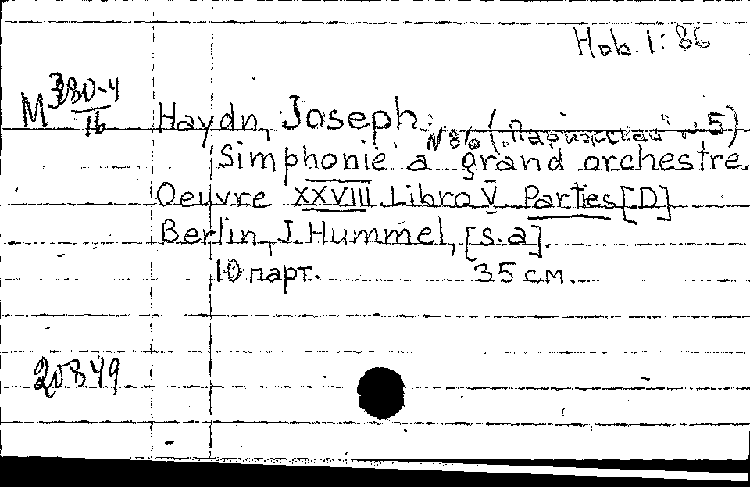 Hob. I: 86
M 380-4
16
Haydn, Joseph.
N 86 („Парижская" № 5)
Simphonie a grand orchestre.
Oeuvre XXVIII Libro V Parties [D]
Berlin, J. Hummel, [s.a].
10 парт. 35 см.
20849